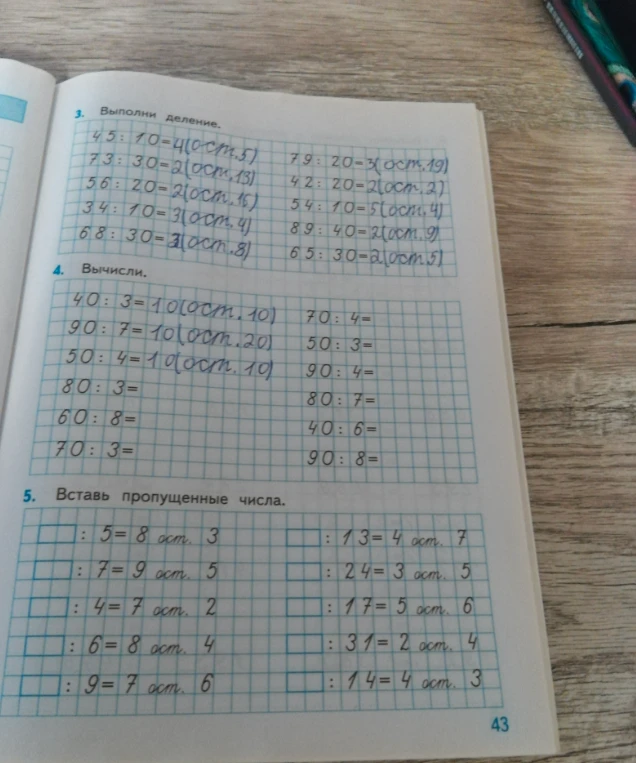 3. Выполни деление.
45 : 10=4(ост.5)
73 : 30=2(ост.13)
56 : 20=2(ост.16)
34 : 10=3(ост.4)
68 : 30=2(ост.8)
79 : 20=3(ост.19)
42 : 20=2(ост.2)
54 : 10=5(ост.4)
89 : 40=2(ост.9)
65 : 30=2(ост5)
4. Вычисли.
40 : 3=10(ост.10)
90 : 7=10(ост.20)
50 : 4=10(ост.10)
80 : 3=
60 : 8=
70 : 3=
70 : 4=
50 : 3=
90 : 4=
80 : 7=
40 : 6=
90 : 8=
5. Вставь пропущенные числа.
: 5=8 ост. 3
: 7=9 ост. 5
: 4=7 ост. 2
: 6=8 ост. 4
: 9=7 ост. 6
: 13=4 ост. 7
: 24=3 ост. 5
: 17=5 ост. 6
: 31=2 ост. 4
: 14=4 ост. 3
43